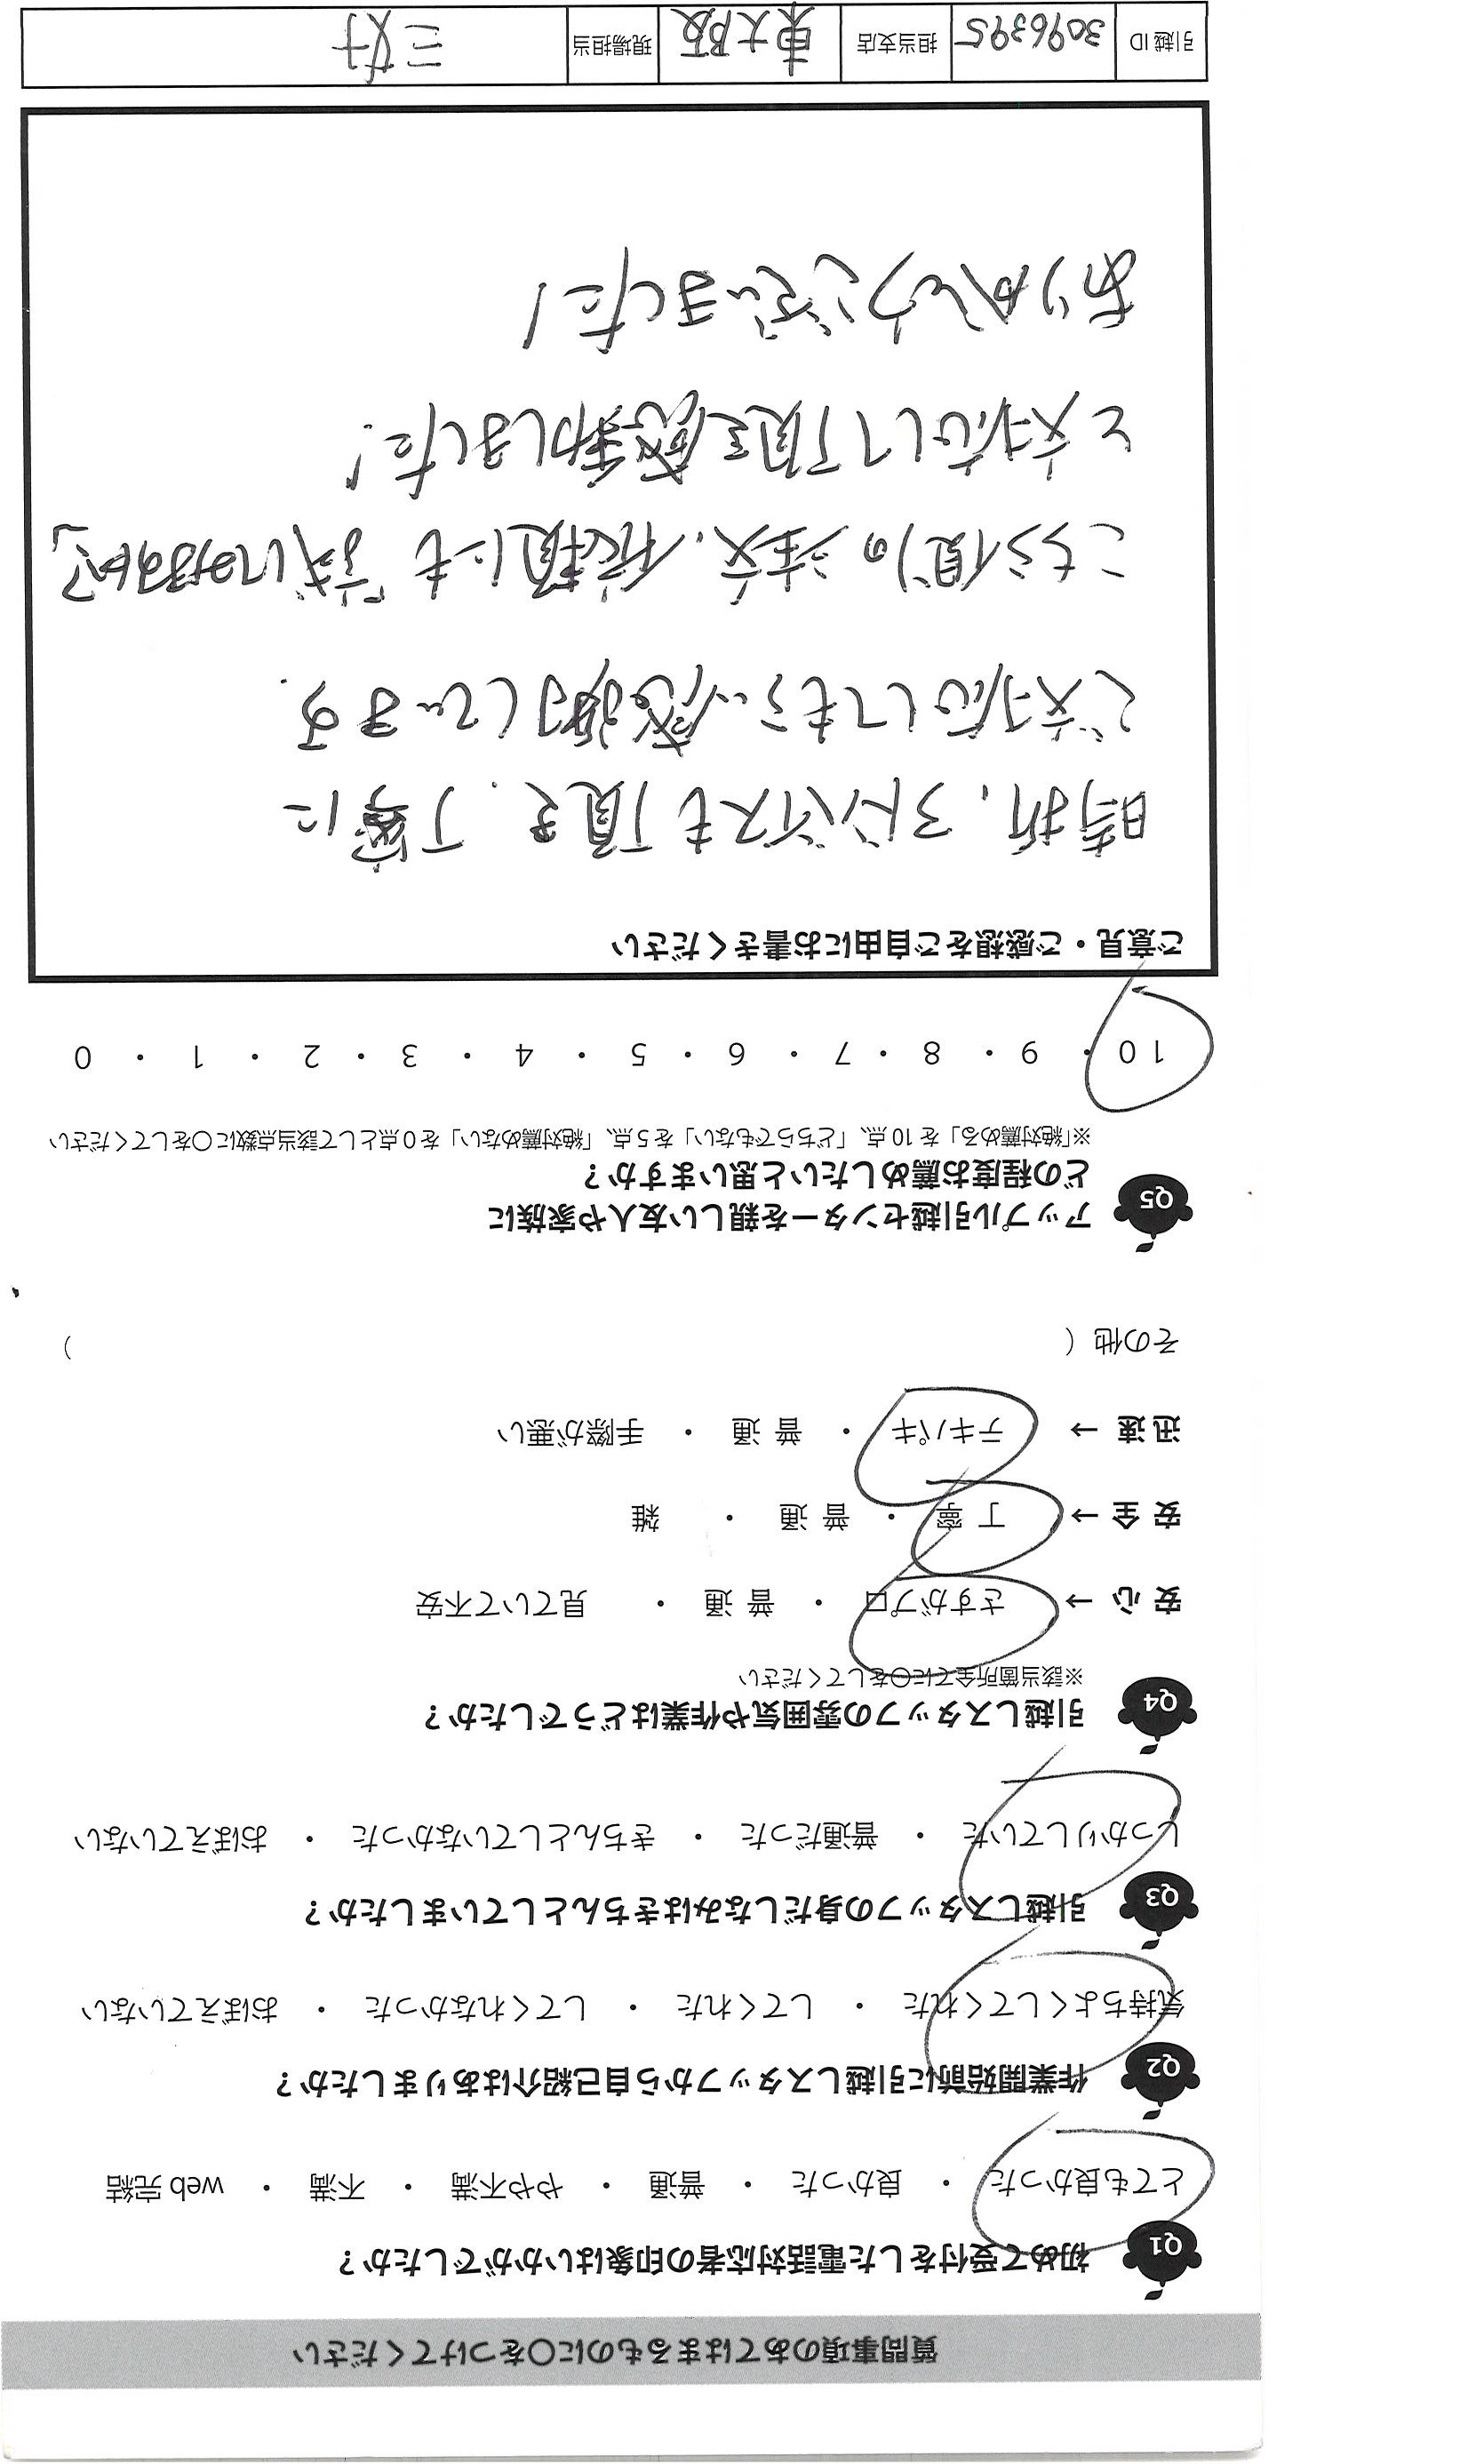 質問事項のあてはまるものに〇をつけてください
Q1 初めて受付をした電話対応者の印象はいかがでしたか？
とても良かった ・ 良かった ・ 普通 ・ やや不満 ・ 不満 ・ web 完結
Q2 作業開始前に引越しスタッフから自己紹介はありましたか？
気持ちよくしてくれた ・ してくれた ・ してくれなかった ・ おぼえていない
Q3 引越しスタッフの身だしなみはきちんとしていましたか？
しっかりしていた ・ 普通だった ・ きちんとしていなかった ・ おぼえていない
Q4 引越しスタッフの雰囲気や作業はどうでしたか？
※該当箇所全てに〇をしてください
安心 → さすがプロ ・ 普通 ・ 見ていて不安
安全 → 丁寧 ・ 普通 ・ 雑
迅速 → テキパキ ・ 普通 ・ 手際が悪い
その他（ ）
Q5 アップル引越センターを親しい友人や家族に
どの程度お薦めしたいと思いますか？
※「絶対薦める」を10点、「どちらでもない」を5点、「絶対薦めない」を0点として該当点数に〇をしてください
10 ・ 9 ・ 8 ・ 7 ・ 6 ・ 5 ・ 4 ・ 3 ・ 2 ・ 1 ・ 0
ご意見・ご感想をご自由にお書きください
時折、アドバイスも頂き、丁寧に
ご対応してもらい感謝しています。
こちら側の注文、依頼にも「試してみますか？」
と対応して頂き感謝しました！
ありがとうございました！
引越ID 3096395 担当支店 東大阪 現場担当 三好